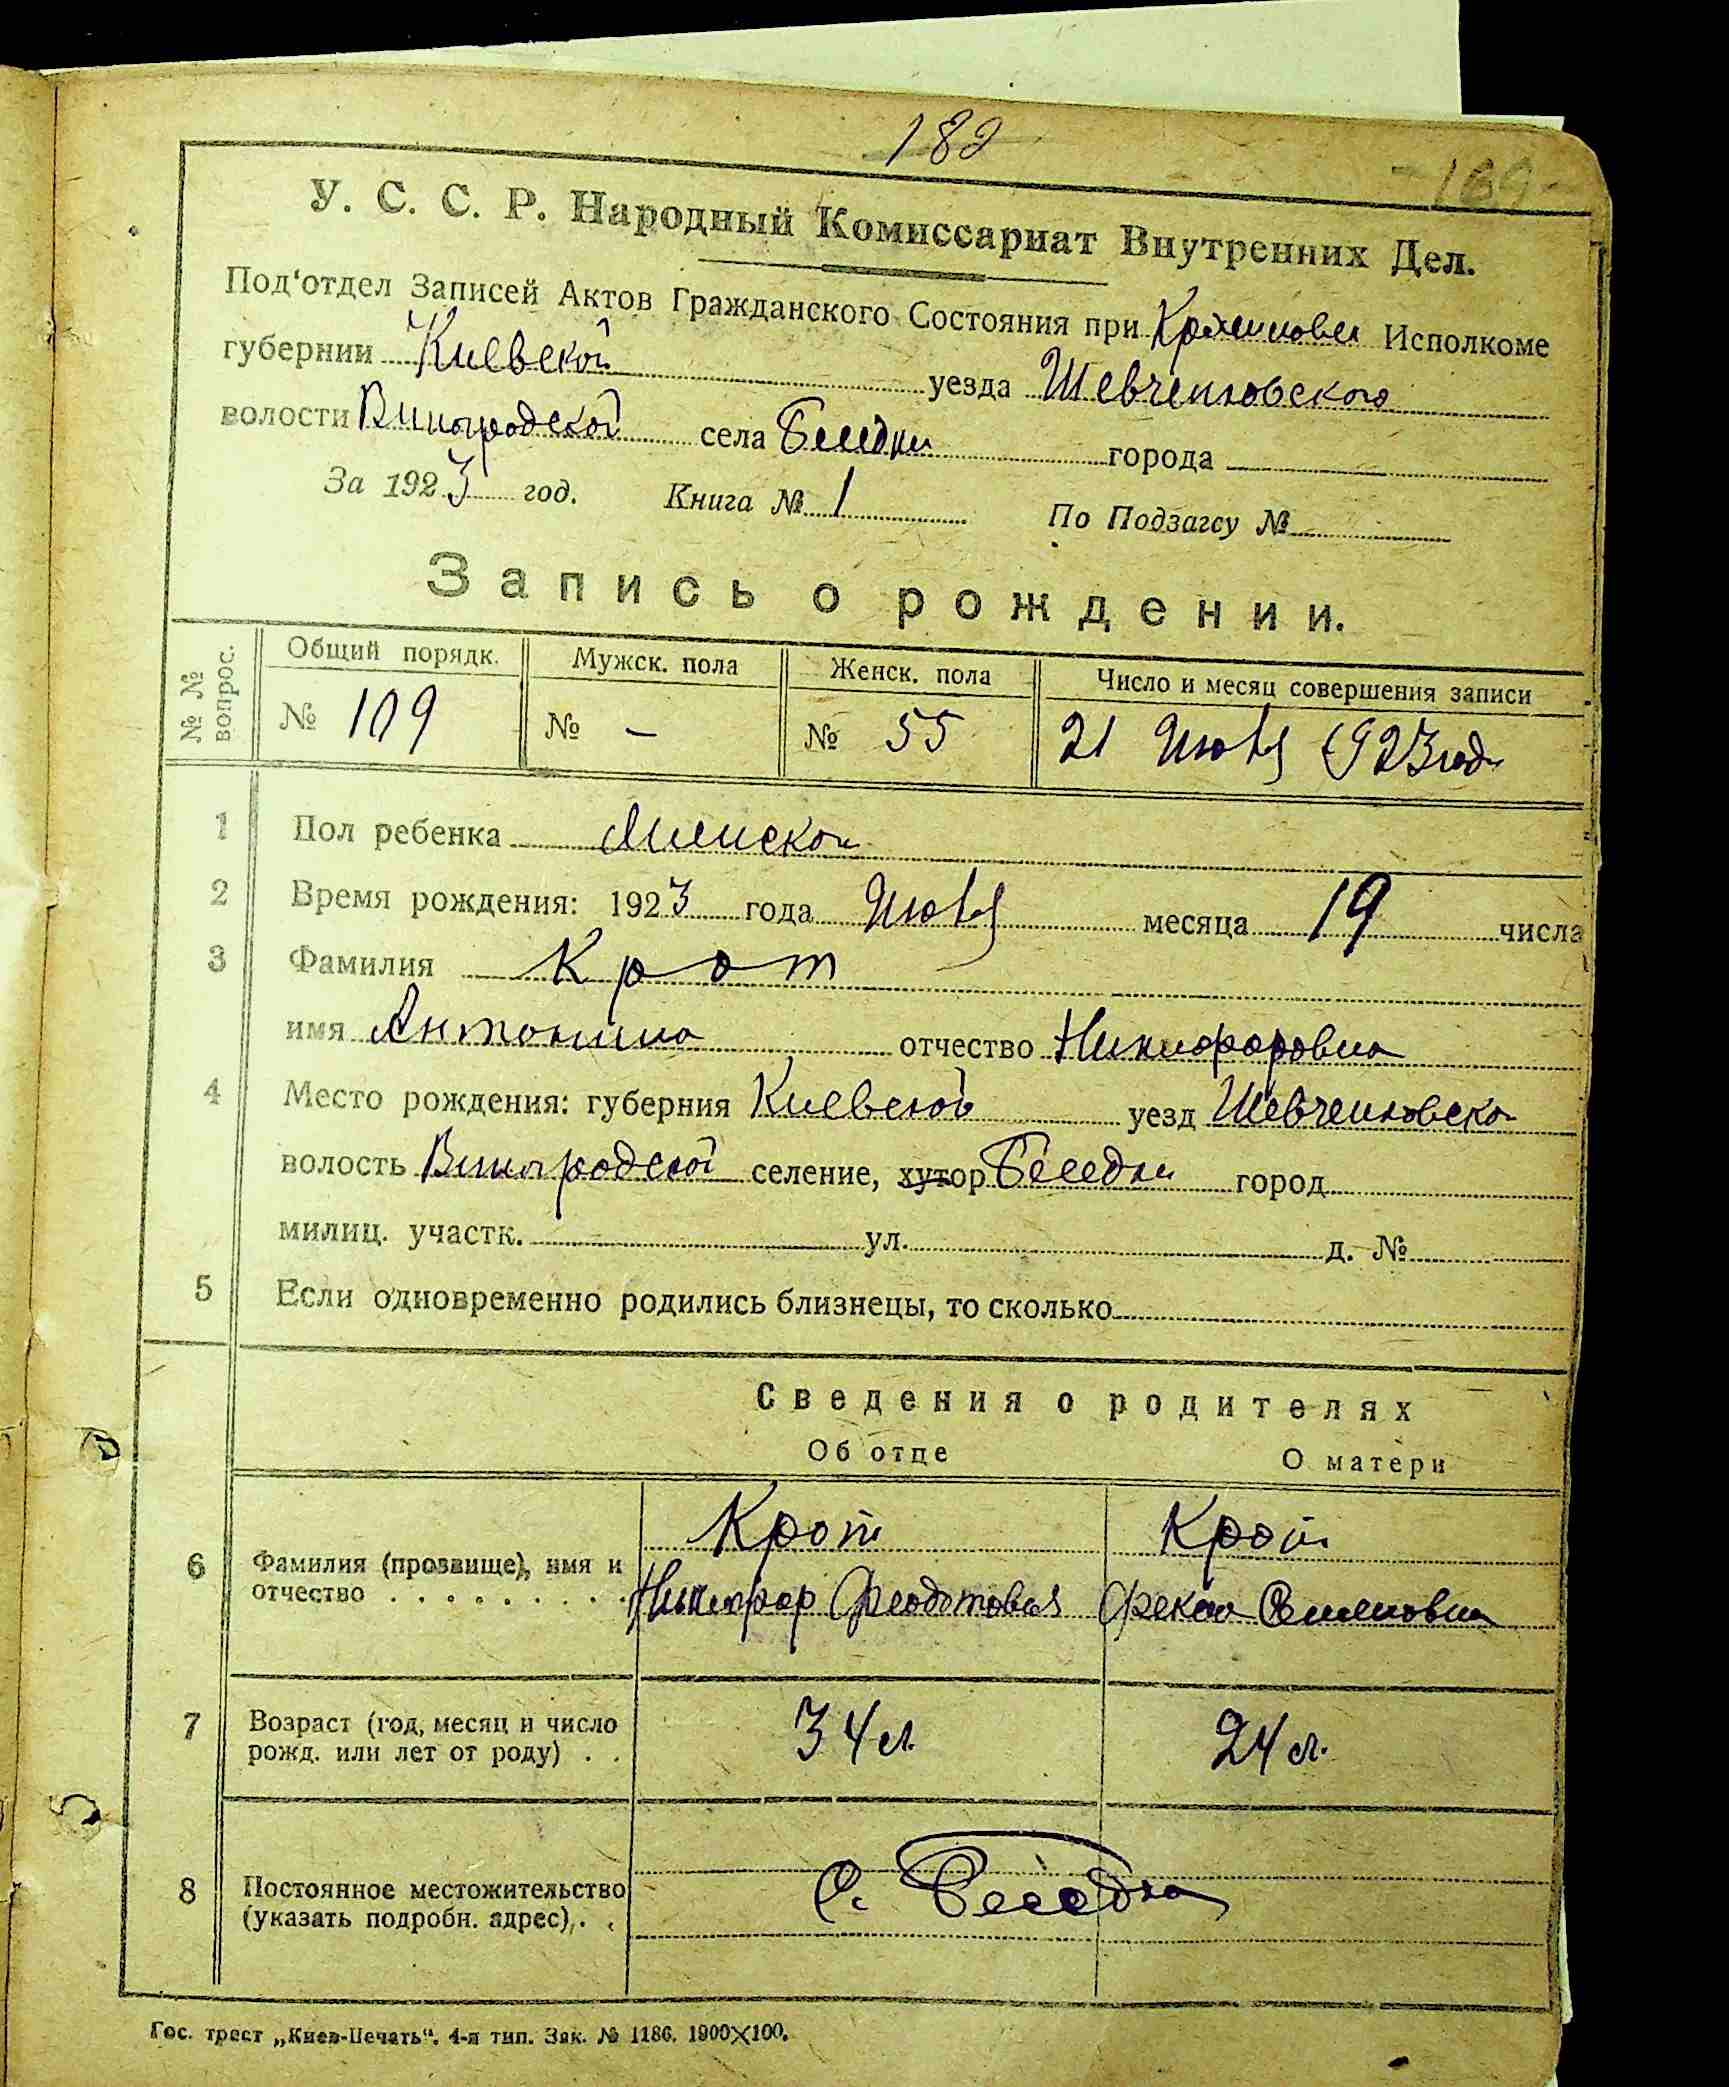 182
169
У. С. С. Р. Народный Комиссариат Внутренних Дел.
Под'отдел Записей Актов Гражданского Состояния при Исполкоме
губернии Киевской уезда Шевченковского
волости Виноградской села Беседки города
За 1923 год. Книга № 1 По Подзагсу №
Запись о рождении.
№ № вопрос.
Общий порядк. Мужск. пола Женск. пола Число и месяц совершения записи
№ 109 № – № 55 21 Июля 1923 год
1 Пол ребенка Женской
2 Время рождения: 1923 года Июля месяца 19 числа
3 Фамилия Крот
имя Антонина отчество Никифоровна
4 Место рождения: губерния Киевской уезд Шевченковско
волость Виноградской селение, хутор Беседки город
милиц. участк. ул. д. №
5 Если одновременно родились близнецы, то сколько
Сведения о родителях
Об отце О матери
Крот Крот
6 Фамилия (прозвище), имя и
отчество Никифор Феодотович Фекла Семеновна
7 Возраст (год, месяц и число
рожд. или лет от роду) 34 л. 24 л.
8 Постоянное местожительство
(указать подробн. адрес) С. Беседка
Гос. трест „Киев-Печать". 4-я тип. Зак. № 1186. 1900X100.